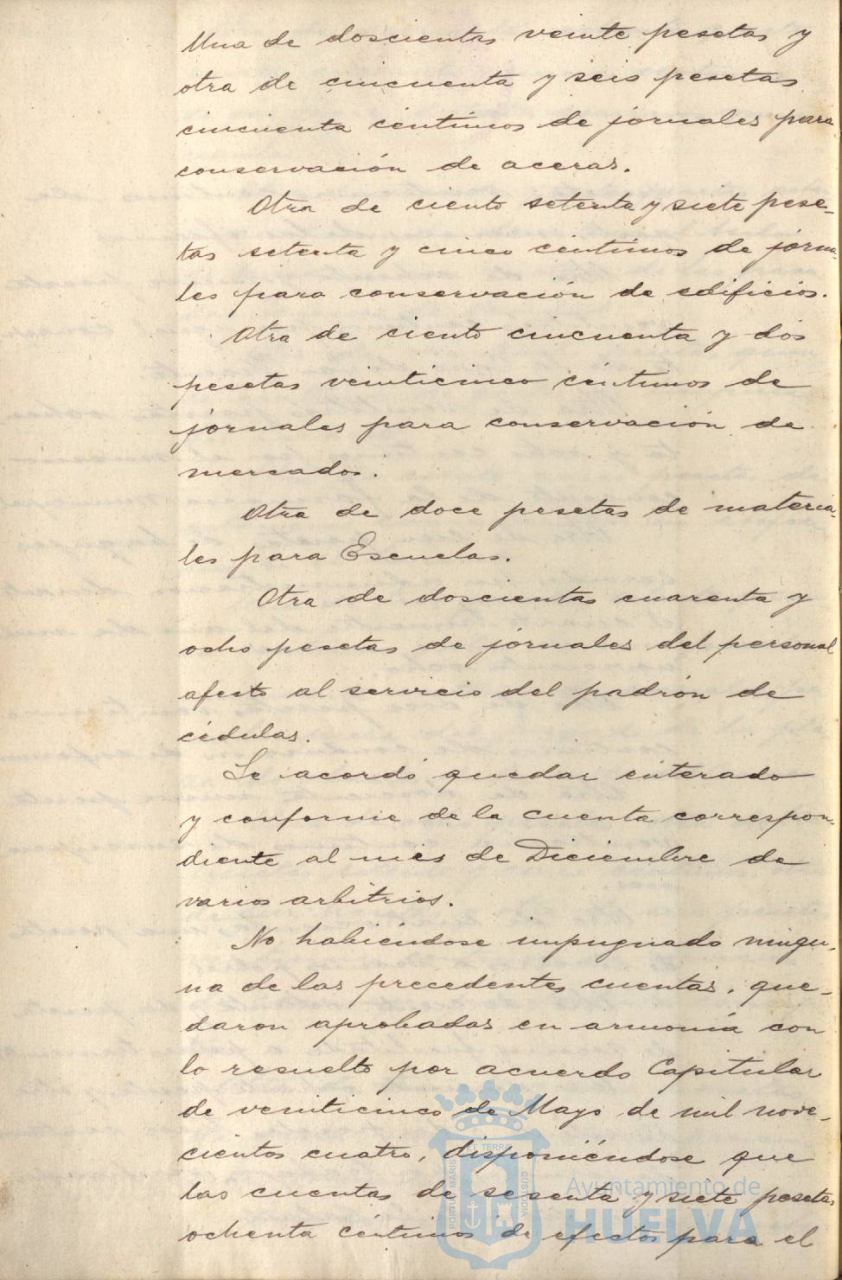 Una de doscientas veinte pesetas y
otra de cincuenta y seis pesetas
cincuenta céntimos de jornales para
conservación de aceras.
Otra de ciento setenta y siete pese-
tas setenta y cinco céntimos de jorna-
les para conservación de edificios.
Otra de ciento cincuenta y dos
pesetas veinticinco céntimos de
jornales para conservación de
mercados.
Otra de doce pesetas de materia-
les para Escuelas.
Otra de doscientas cuarenta y
ocho pesetas de jornales del personal
afecto al servicio del padrón de
cédulas.
Se acordó quedar enterado
y conforme de la cuenta correspon-
diente al mes de Diciembre de
varios arbitrios.
No habiéndose impugnado ningu-
na de las precedentes cuentas, que-
daron aprobadas en armonía con
lo resuelto por acuerdo Capitular
de veinticinco de Mayo de mil nove-
cientos cuatro, disponiéndose que
las cuentas de sesenta y siete pesetas
ochenta céntimos de efectos para el
Ayuntamiento de
HUELVA
PORTUS MARIS ET TERRÆ CUSTODIA